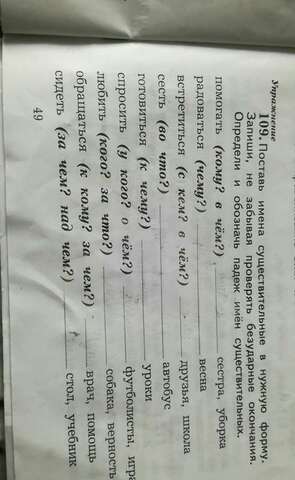 Упражнение
109. Поставь имена существительные в нужную форму.
Запиши, не забывая проверять безударные окончания.
Определи и обозначь падеж имён существительных.
помогать (кому? в чём?) сестра, уборка
радоваться (чему?) весна
встретиться (с кем? в чём?) друзья, школа
сесть (во что?) автобус
готовиться (к чему?) уроки
спросить (у кого? о чём?) футболисты, игра
любить (кого? за что?) собака, верность
обращаться (к кому? за чем?) врач, помощь
сидеть (за чем? над чем?) стол, учебник
49